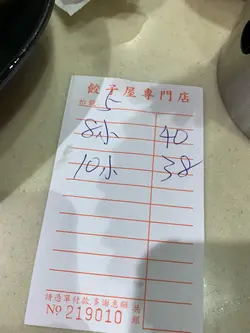 餃子屋專門店
枱號 5
8小 40
10小 38
請憑單付款,多謝惠顧
№ 219010